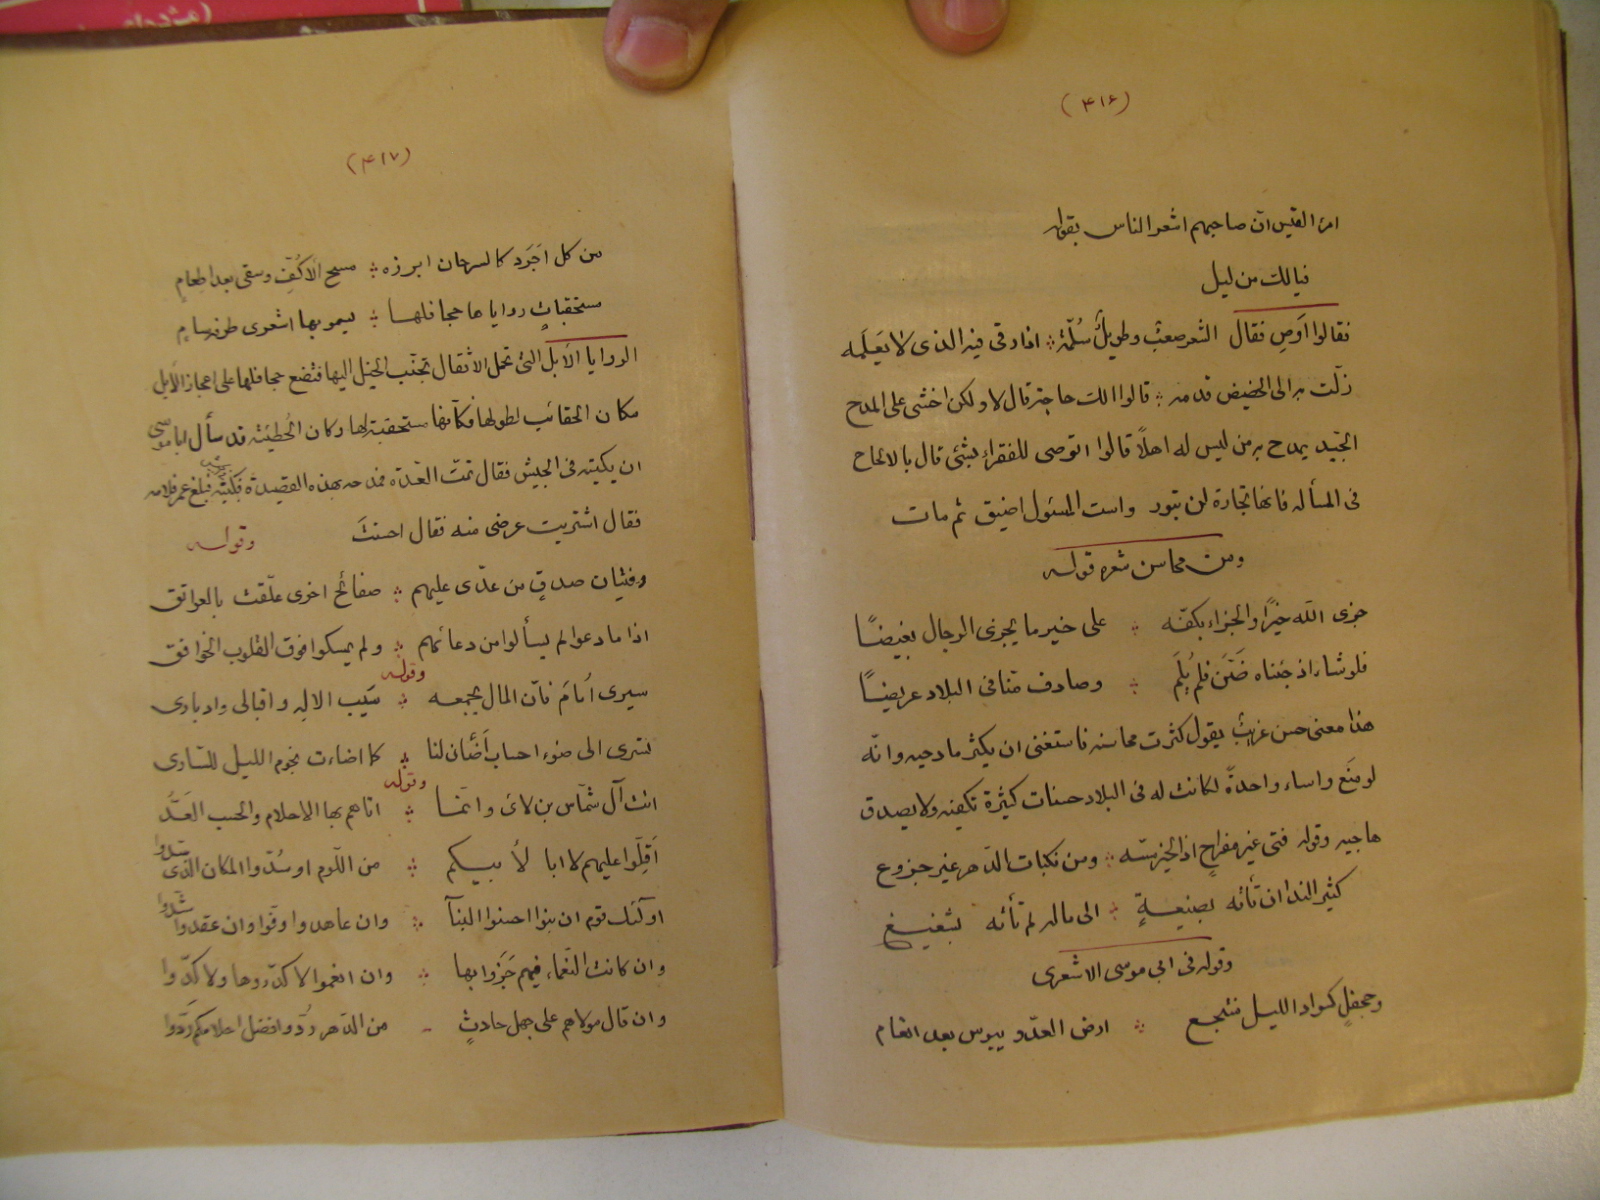 (۴۱۶)
امرء القیس انّ صاحبهم اشعر الناس بقوله
فیالك من لیل
فقالوا اَوصِ فقال الشعر صعبٌ وطویلٌ سُلّمُهٗ اذا رقی فیه الذی لا یَعلَمه
زلّت به الی الحضیض قدمه قالوا الك حاجة قال لا ولکن اخشی علی المدح
الجیّد یمدح به من لیس له اهلاً قالوا اتوصی للفقراء بشئی قال بالالحاح
فی المسأله فانها تجارة لن تبور واست المسئول اضیق ثم مات
ومن محاسن شعره قوله
جزی الله خیرًا والجزاء بکفّه علی خیر ما یجزی الرجال بغیضًا
فلو شاء اذ جئناه ضَنَّ فلم یُلَم وصادف منّا فی البلاد عریضًا
هذا معنی حسن غریبٌ یقول کثرت محاسنه فاستغنی ان یکثر مادحیه وانّه
لو منَع واساء واحدةً لکانت له فی البلاد حسنات کثیرة تکفیه ولا یصدق
هاجیه وقوله فتی غیر مفراحٍ اذ الخیر مسّه ومن نکبات الدّهر غیر جزوع
کثیر الندا ان تأته بصنیعةٍ الی ماله لم تأته بشفیع
وقوله فی ابی موسی الاشعری
وجحفلٍ کسواد اللیل منتجع ارض العدّو ببوس بعد انعام
(۴۱۷)
من کل اَجرَد کالسرحان ابرزه مسح الاَکُفِّ وسقی بعد اطعامٍ
مستحقباتٍ روایاها جحافلها یسمو بها اشعری طرفه سامٍ
الروایا الاَبل التی تحمل الاثقال تجنّب الخیل الیها فتضع جحافلها علی اعجاز الاَبل
مکان الحقائب لطولها فکأنها مستحقبة لها وکان الحُطیئة قد سأل ابا موسی
ان یکتبه فی الجیش فقال تمّت العّدة فمدحه بهذه القصیدة فکتبه فبلغ عمر فلامه
فقال اشتریت عرضی منه فقال احسنتَ وقوله
وفتیان صدقٍ من عدّی علیهم صفائح اخری علّقت بالعواتق
اذا ما دعوا لم یسألوا من دعائهم ولم یمسکوا فوق القلوب الخوافق
وقوله
سیری اُمامَ فأن المال یجمعه سَیَب الاله واقبالی وادباری
نسری الی ضوء احساب اَضَأن لنا کما اضاءت نجوم اللیل للسّاری
وقوله
اتت آل شمّاس بن لائ وانّما اتاهم بها الاحلام والحسب العَدُّ
اَقِلّوا علیهم لا ابا لأ بیکم من اللّوم او سُدّوا المکان الذی سدوا
اولٰئك قوم ان بنوا احسنوا البنآ وان عاهدوا اوفوا وان عقدوا شدوا
وان کانت النعّماء فیهم جَزَوا بها وان انعموا لا کدّروها ولا کدّوا
وان قال مولاهم علی جهل حادثٍ من الدّهر رُدّوا فضل احلامکم رَدّوا